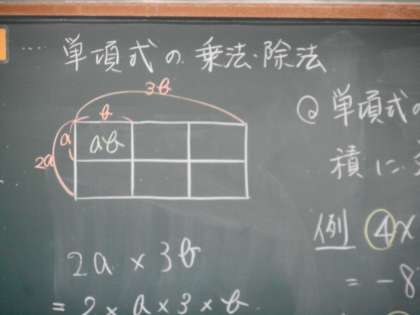 単項式の乗法・除法
3b
b
a
ab
2a
2a × 3b
= 2 × a × 3 × b
◎ 単項式の
積に
例 ④×
= -8